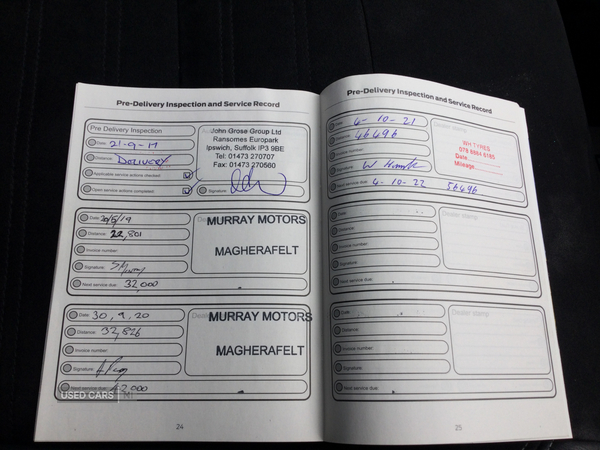 Pre-Delivery Inspection and Service Record
Pre Delivery Inspection
Date: 21-9-17
Distance: DELIVERY
Applicable service actions checked:
Open service actions completed:
John Grose Group Ltd
Ransomes Europark
Ipswich, Suffolk IP3 9BE
Tel: 01473 270707
Fax: 01473 270560
Signature:
Date: 20/5/19
Distance: 22,801
Invoice number:
Signature:
Next service due: 32,000
MURRAY MOTORS
MAGHERAFELT
Date: 30, 9, 20
Distance: 32,826
Invoice number:
Signature:
Next service due: 42,000
MURRAY MOTORS
MAGHERAFELT
USED CARS NI
24
Pre-Delivery Inspection and Service Record
4-10-21
46496
Next service due: 4-10-22 56496
Dealer stamp
WH TYRES
078 8684 5165
Date
Mileage
Date:
Distance:
Invoice number:
Signature:
Next service due:
Dealer stamp
Date:
Distance:
Invoice number:
Signature:
Next service due:
Dealer stamp
25